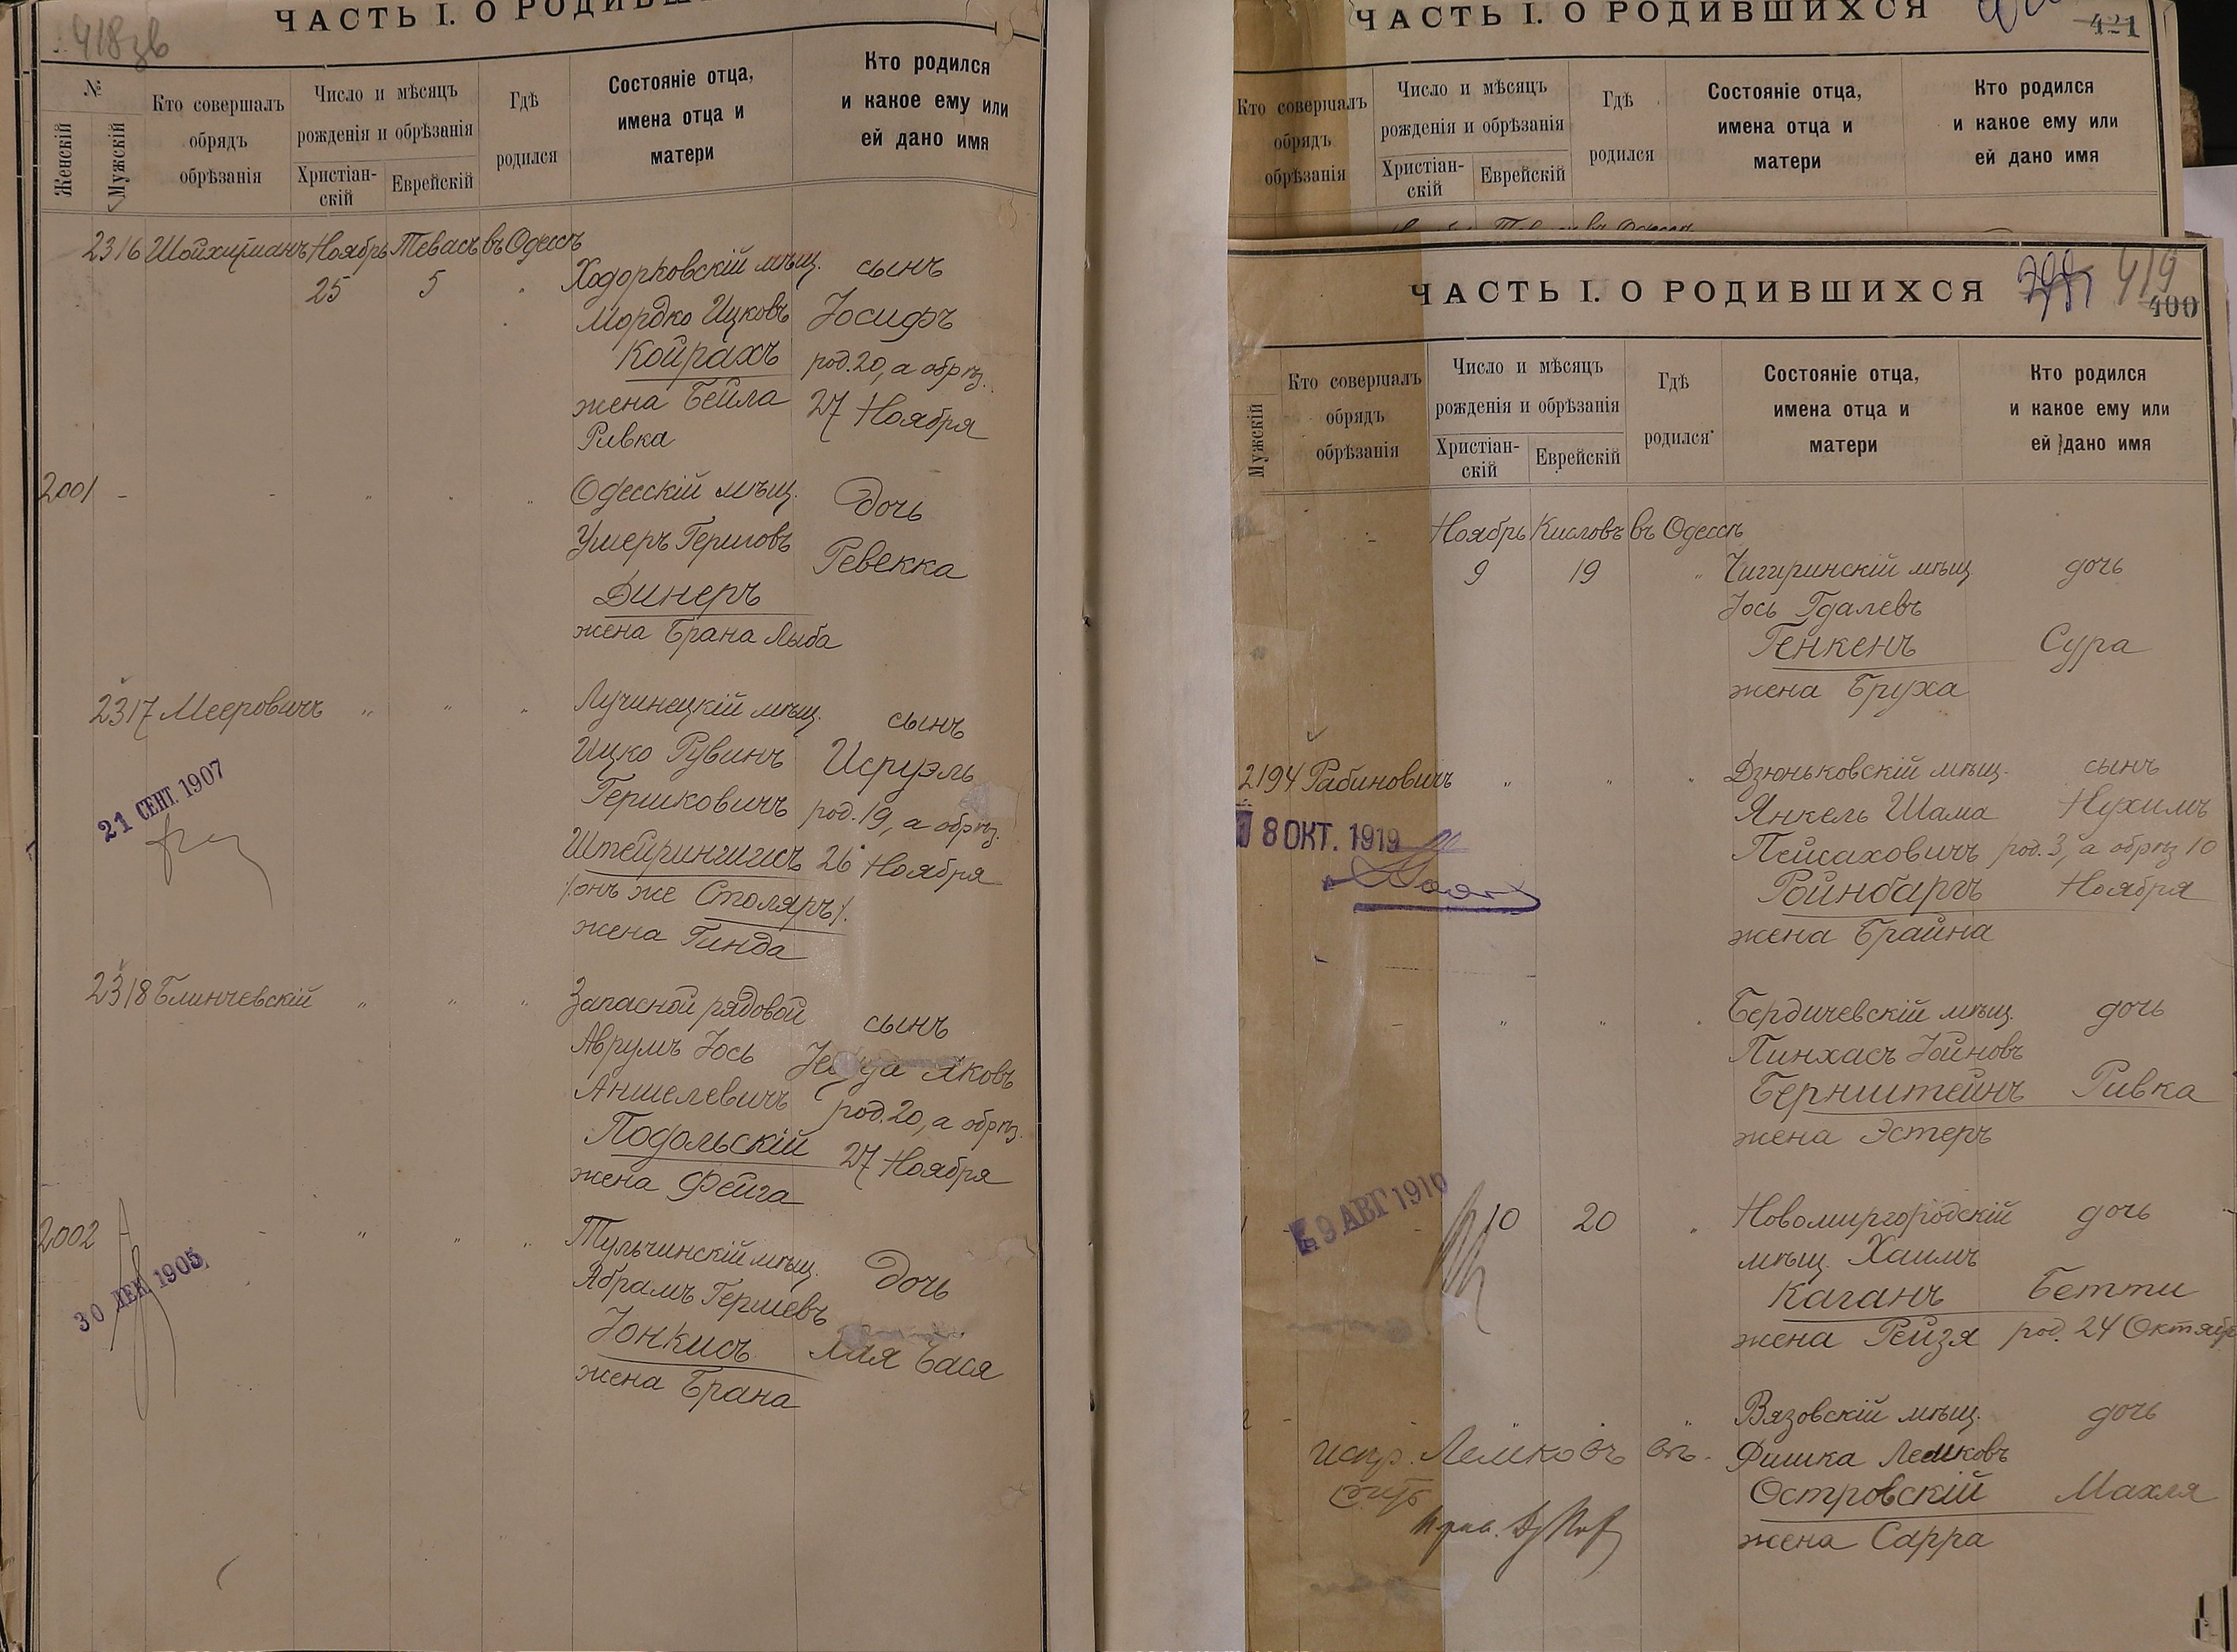 418 зв
ЧАСТЬ I. О РОДИВШ
№
Женскій
Мужскій
Кто совершалъ
обрядъ
обрѣзанія
Число и мѣсяцъ
рожденія и обрѣзанія
Христіан-
скій
Еврейскій
Гдѣ
родился
Состояніе отца,
имена отца и
матери
Кто родился
и какое ему или
ей дано имя
2316 Шойхитманъ Ноябрь Тевасъ въ Одессѣ
25 5 "
Ходорковскій мѣщ. сынъ
Мордко Ицковъ Іосифъ
Койрахъ род. 20, а обрѣз.
жена Бейла 27 Ноября
Ривка
2001 - - " " "
Одесскій мѣщ. дочь
Умеръ Гершовъ
Ревекка
Динеръ
жена Брана Лыба
2317 Мееровичъ " " "
Лучинецкій мѣщ. сынъ
Ицко Рувинъ Исруэль
Гершковичъ род. 19, а обрѣз.
26 Ноября
/:онъ же Столяръ:/
жена Гинда
21 СЕНТ. 1907
2318 Блинчевскій " " "
Запасной рядовой сынъ
Аврумъ Іось Яковъ
Аншелевичъ род. 20, а обрѣз.
Подольскій 27 Ноября
жена Фейга
2002 - " " "
Тульчинскій мѣщ. дочь
Абрамъ Гершевъ
Іонкисъ Бася
жена Брана
30 ДЕК. 1905
ЧАСТЬ I. О РОДИВШИХСЯ
421
Кто совершалъ
обрядъ
обрѣзанія
Число и мѣсяцъ
рожденія и обрѣзанія
Христіан-
скій
Еврейскій
Гдѣ
родился
Состояніе отца,
имена отца и
матери
Кто родился
и какое ему или
ей дано имя
ЧАСТЬ I. О РОДИВШИХСЯ
419
400
Мужскій
Кто совершалъ
обрядъ
обрѣзанія
Число и мѣсяцъ
рожденія и обрѣзанія
Христіан-
скій
Еврейскій
Гдѣ
родился
Состояніе отца,
имена отца и
матери
Кто родился
и какое ему или
ей дано имя
- Ноябрь Кисловъ въ Одессѣ
9 19 "
Чигиринскій мѣщ дочь
Іось Гдалевъ
Генкенъ Сура
жена Бруха
2194 Рабиновичъ " " "
Дзюньковскій мѣщ. сынъ
Янкель Шама Нухимъ
Пейсаховичъ род. 3, а обрѣз 10
Ройнбаргъ Ноября
жена Брайна
8 ОКТ. 1919
- " " "
Бердичевскій мѣщ. дочь
Пинхасъ Іойновъ
Бернштейнъ Ривка
жена Эстеръ
9 АВГ 1910
- 10 20 "
Новомиргородскій дочь
мѣщ. Хаимъ
Каганъ Бетти
жена Рейзя род. 24 Октября
- " " "
Вязовскій мѣщ. дочь
Фишка Лейковъ
Островскій Махля
жена Сарра
испр. Лейковъ